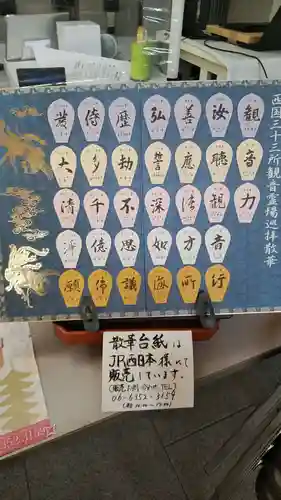 西国三十三所観音霊場巡拝散華
観音力
汝聴観音行
善應諸方所
弘誓深如海
歴劫不思議
侍多千億佛
發大清浄願
散華台紙は
JR西日本様にて
販売しています。
TEL)
06-6352-3159